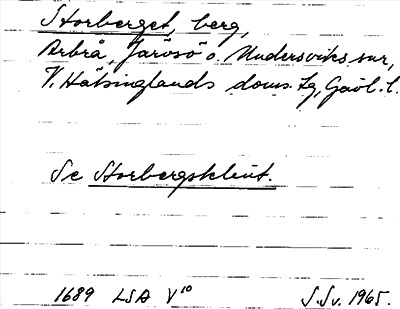 Storberget, berg,
Arbrå, Järvsö o. Undersviks snr,
V. Hälsinglands doms. tg, Gävl. l.
Se Storbergsklint.
1689 LSA V¹⁰ S.Sv. 1965.